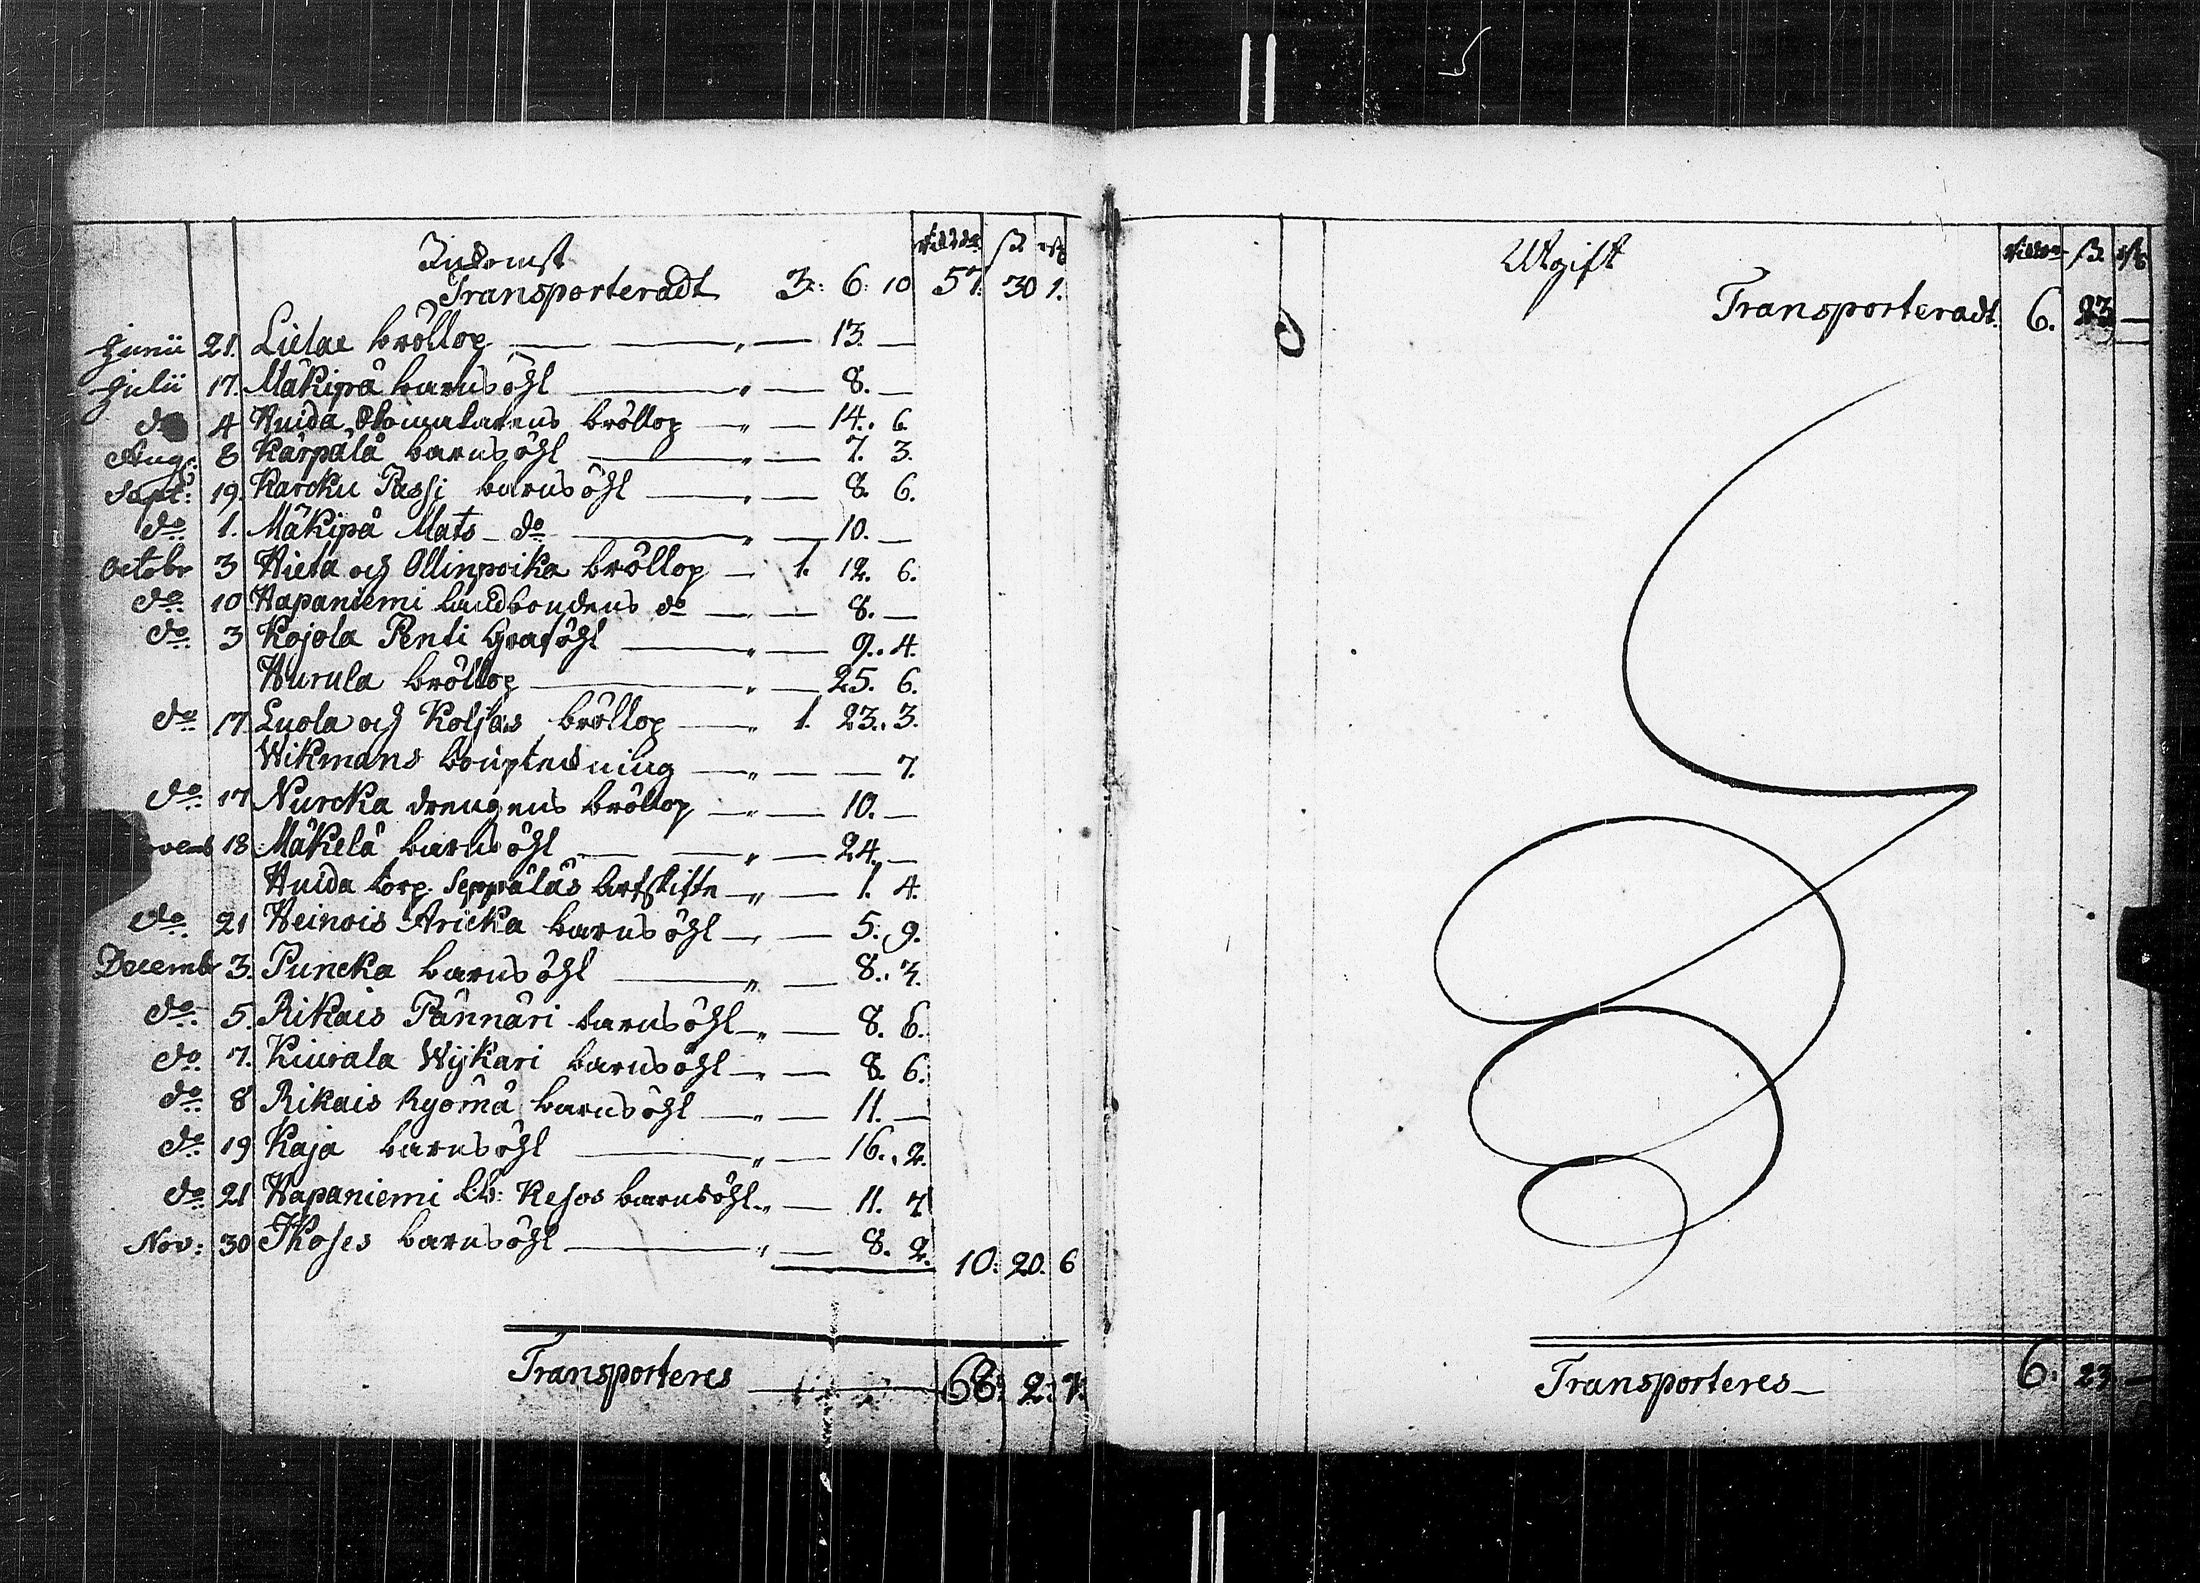 Inkomst Riksd: ß rst
Transporteradt 3: 6: 10 57. 30 1.
Junii 21. Lielax bröllop — „ — 13. —
Julii 17. Mäkipä barnsöhl — „ — 8. —
do 4 Huida bröllop — „ — 14. 6.
Aug: 8 Kärpälä barnsöhl — „ — 7. 3.
Sept: 19. Karcku Passi barnsöhl — „ — 8. 6.
do 1. Mäkipä Mats do — „ — 10. —
Octobr 3 Hieta och Ollinpoika bröllop — 1. 12. 6.
do 10 Hapaniemi landbondens do — „ — 8. —
do 3 Kojola Penti Graföhl — „ — 9. 4.
Hurula bröllop — „ — 25. 6.
do 17. Luola och Koljas bröllop — 1. 23. 3.
Wikmans bouptekning — „ — — 7.
do 17 Nurcka drengens bröllop — „ — 10. —
ovemb 18. Mäkelä barnsöhl — „ — 24. —
Huida torp. Seppäläs arfskifte — „ — 1. 4.
do 21 Heinois Aricka barnsöhl — „ — 5. 9.
Decembr 3. Puncka barnsöhl — „ — 8. 3.
do 5. Rikais Pännäri barnsöhl — „ — 8. 6.
do 7. Kiurala Wijkari barnsöhl — „ — 8. 6.
do 8 Rikais Ryömä barnsöhl — „ — 11. —
do 19 Kaja barnsöhl — „ — 16. 2.
do 21 Hapaniemi Lb: Kesos barnsöhl „ — 11. 7.
Nov: 30 Ikoses barnsöhl — „ — 8. 2. 10. 20. 6
Transporteres — 68. 2. 7.
Utgift Riksd ß rst
Transporteradt. 6. 23 —
Transporteres — 6. 23 —